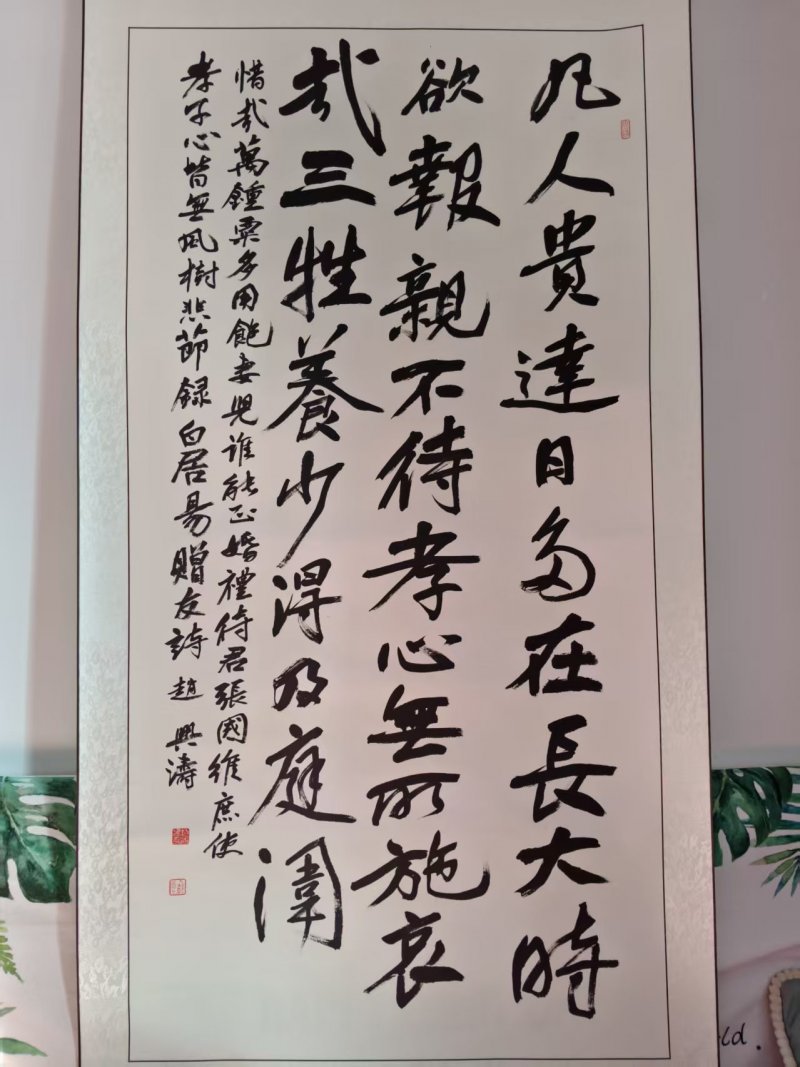 凡人貴達日多在長大時
欲報親不待孝心無所施哀
哉三牲養少得及庭闈
惜哉萬鍾粟多用飽妻兒誰能正婚禮待君張國維庶使
孝子心皆無風樹悲節録白居易贈友詩趙興濤